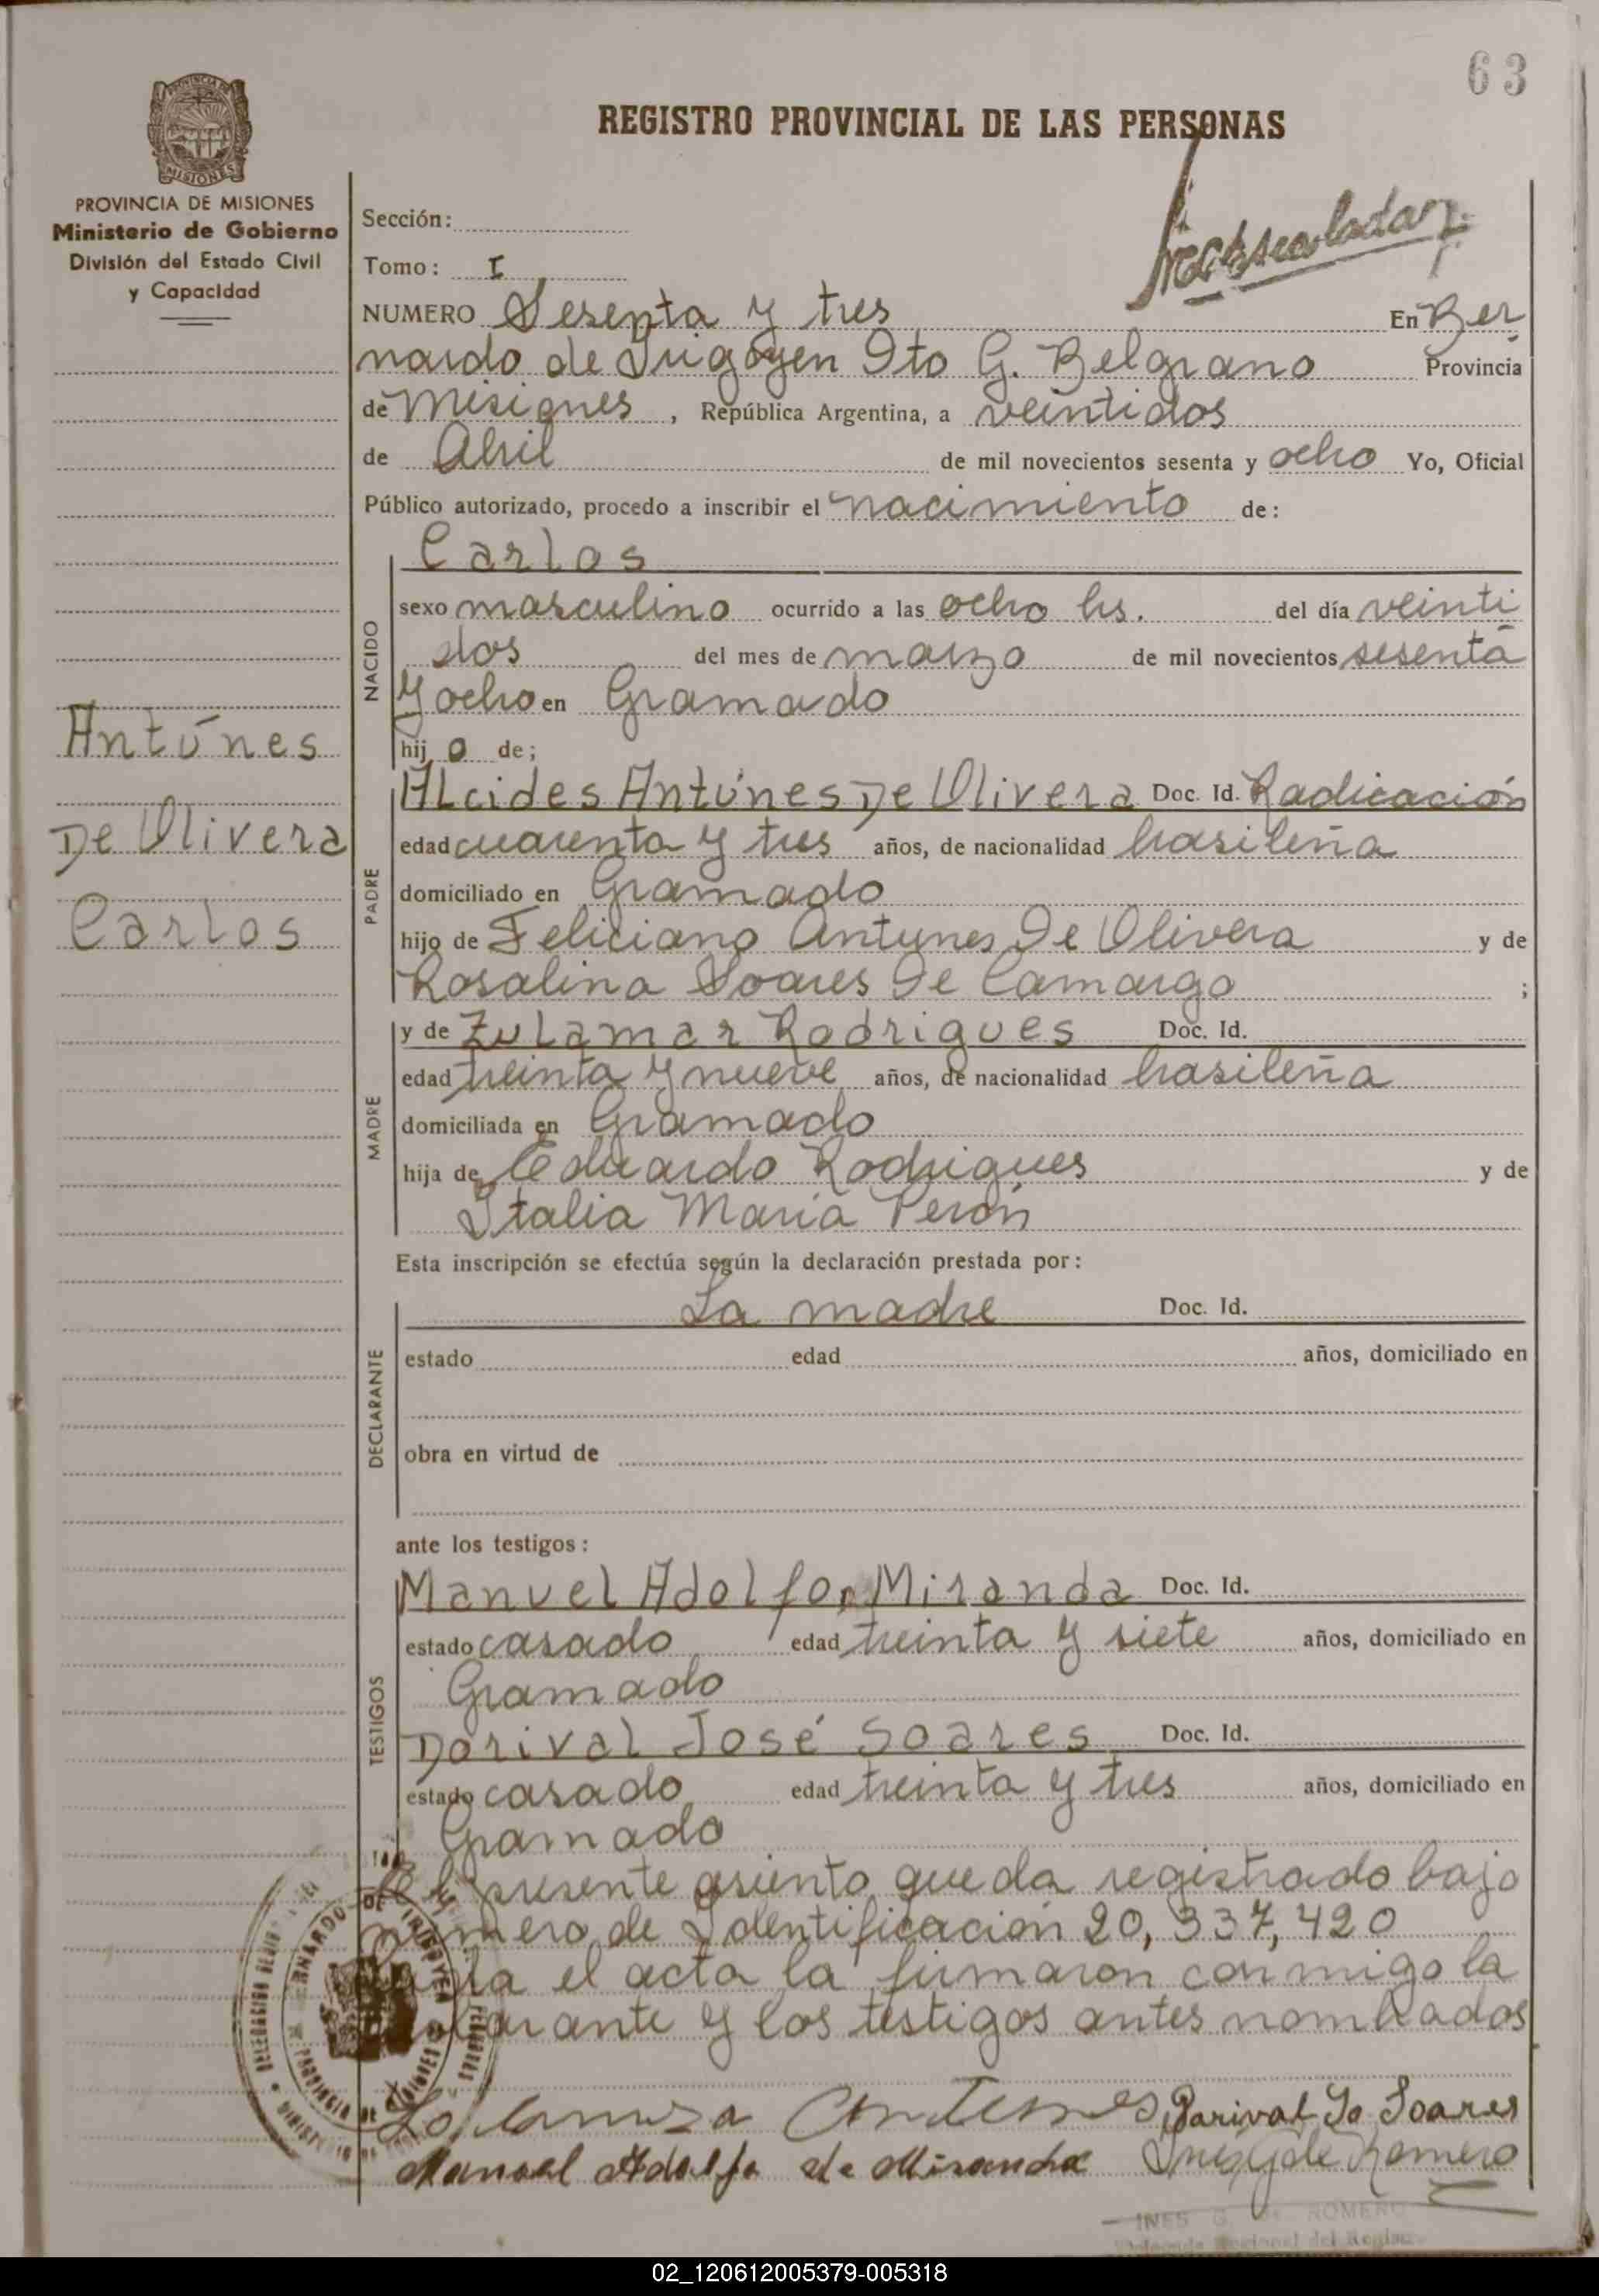 63
REGISTRO PROVINCIAL DE LAS PERSONAS
PROVINCIA DE MISIONES
Ministerio de Gobierno
División del Estado Civil
y Capacidad
Sección:
Tomo: I
NUMERO Sesenta y tres En Ber
nardo de Irigoyen Dto G. Belgrano Provincia
de Misiones, República Argentina, a veintidos
de Abril de mil novecientos sesenta y ocho Yo, Oficial
Público autorizado, procedo a inscribir el nacimiento de:
Carlos
NACIDO
sexo masculino ocurrido a las ocho hs. del día veinti
dos del mes de marzo de mil novecientos sesenta
y ocho en Gramado
hijo de;
Antúnes
De Olivera
Carlos
PADRE
ALcides Antúnes De Olivera Doc. Id. Radicación
edad cuarenta y tres años, de nacionalidad brasileña
domiciliado en Gramado
hijo de Feliciano Antunes De Olivera y de
Rosalina Soares De Camargo ;
MADRE
y de ZuLamar Rodrigues Doc. Id.
edad treinta y nueve años, de nacionalidad brasileña
domiciliada en Gramado
hija de Eduardo Rodrigues y de
Italia María Perón
Esta inscripción se efectúa según la declaración prestada por:
DECLARANTE
La madre Doc. Id.
estado edad años, domiciliado en
obra en virtud de
ante los testigos:
TESTIGOS
ManueL AdoLfo Miranda Doc. Id.
estado casado edad treinta y siete años, domiciliado en
Gramado
DorivaL José Soares Doc. Id.
estado casado edad treinta y tres años, domiciliado en
Gramado
El presente asiento queda registrado bajo
número de Identificación 20,337,420
el acta la firmaron conmigo la
declarante y los testigos antes nombrados
Dorival Jo Soares
Manoel Adolfo de Miranda Ines G de Romero
INES G. de ROMERO
02_120612005379-005318